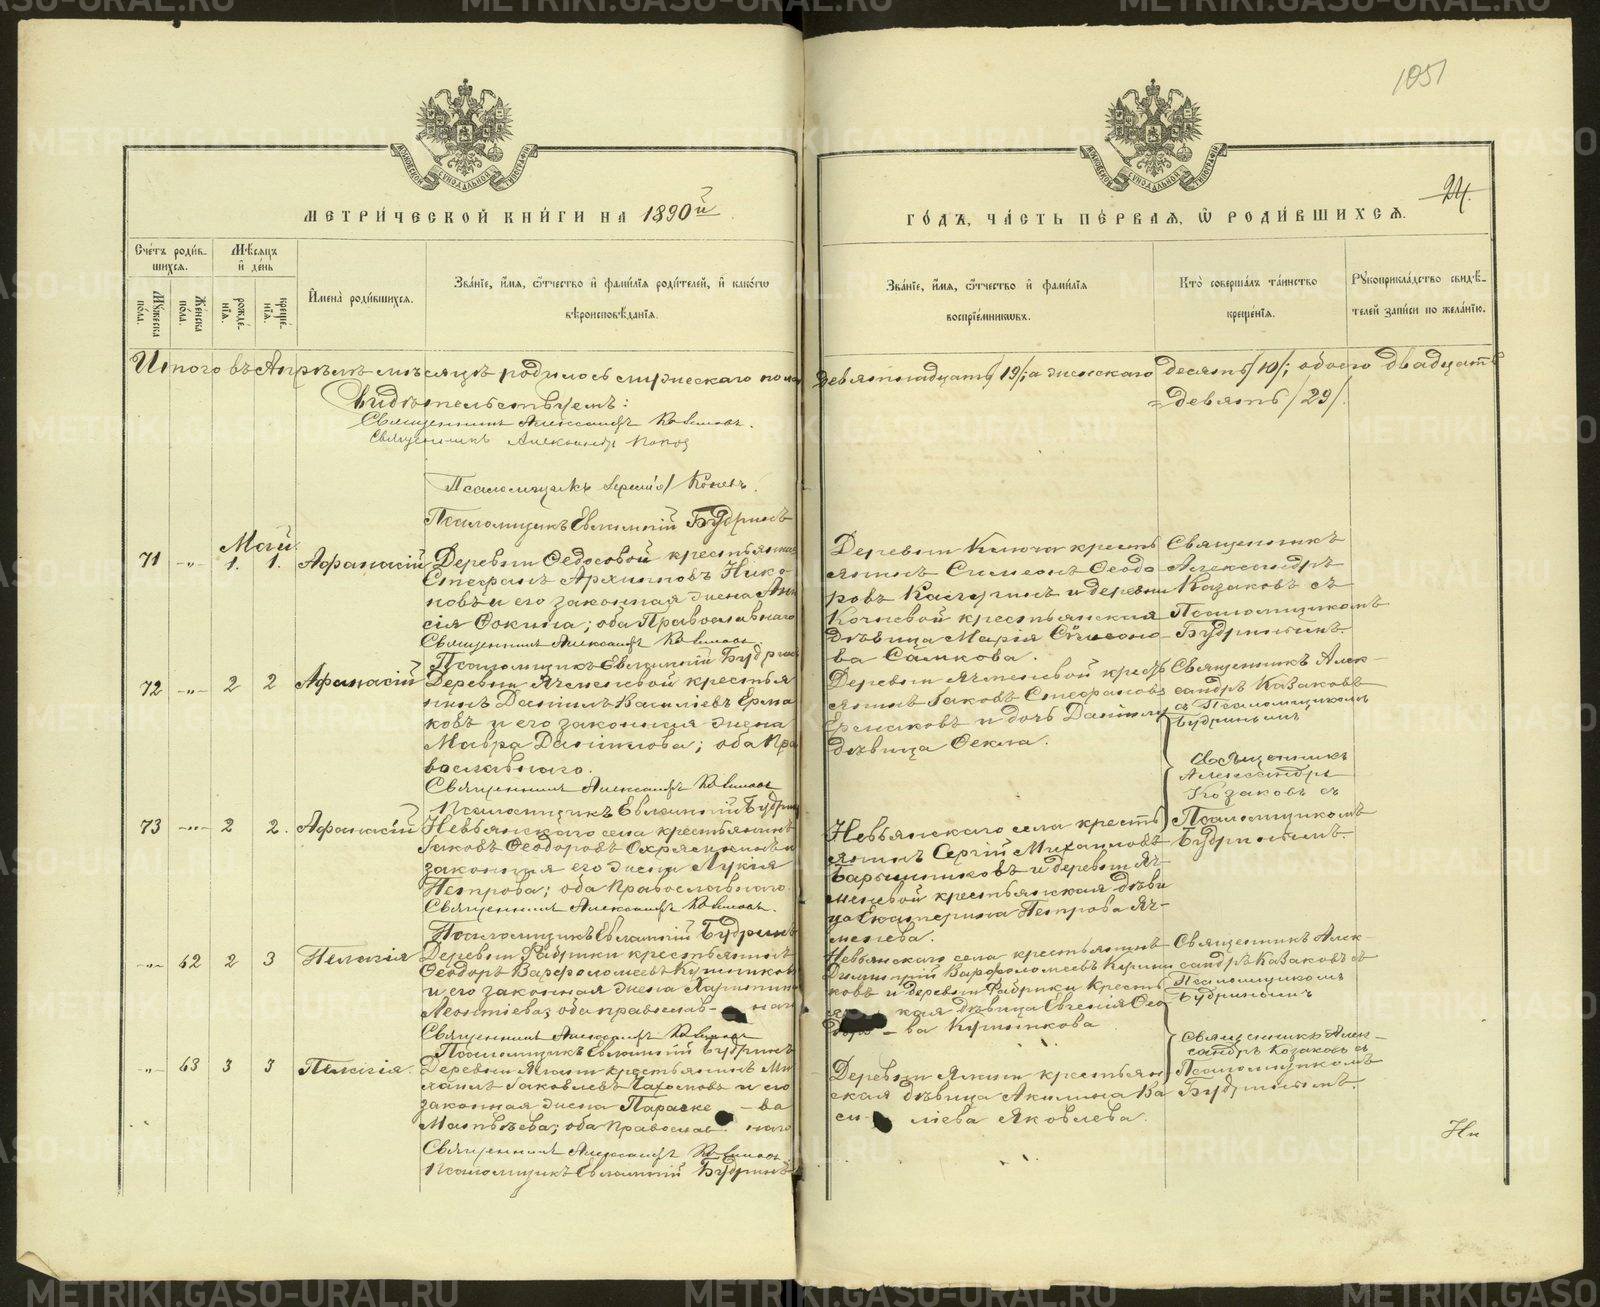 1051
24.
МЕТРИ́ЧЕСКОЙ КНИ́ГИ НА 1890й
ГО́ДЪ, ЧА́СТЬ ПЕ́РВАЯ, Ѡ҆ РОДИ́ВШИХСЯ.
Сче́тъ роди́вшихся.
Му́жеска по́ла.
Же́нска по́ла.
Мѣ́сяцъ и҆ де́нь
рожде́нїя.
креще́нїя.
И҆мена̀ роди́вшихся.
Зва́нїе, и҆́мя, ѻ҆́тчество и҆ фами́лїя роди́телей, и҆ како́гѡ вѣроисповѣ́данїя.
Зва́нїе, и҆́мя, ѻ҆́тчество и҆ фами́лїя воспрїе́мникѡвъ.
Кто̀ соверша́лъ та́инство креще́нїя.
Рꙋкоприкла́дство свидѣ́телей за́писи по жела́нїю.
Итого въ Апрѣлѣ мѣсяцѣ родилось мужескаго пола девятнадцать /19/; а женскаго десять /10/; обоего двадцать
девять /29/.
Свидѣтельствуемъ:
Священникъ Александръ Козаковъ.
Священникъ Александръ Попов
Псаломщикъ Сергій Коневъ.
Псаломщикъ Евлампій Будринъ
Май
71 -"- 1. 1. Афанасій
Деревни Ѳедосовой крестьянинъ
Стефанъ Архиповъ Нико-
новъ и его законная жена Ани
сія Ѳокина; оба Православнаго
Священникъ Александръ Козаковъ.
Псаломщикъ Евлампій Будринъ
Деревни Ключа кресть
янинъ Симеонъ Ѳеодо
ровъ Калугинъ и деревни
Кочневой крестьянская
дѣвица Марія Симеоно-
ва Самкова.
Священникъ
Александръ
Казаковъ съ
Псаломщикомъ
Будринымъ.
72 -"- 2 2 Афанасій
Деревни Ячменевой крестья
нинъ Даніилъ Василіевъ Ерма
ковъ и его законная жена
Мавра Даніилова; оба Пра
вославнаго.
Священникъ Александръ Козаковъ
Псаломщикъ Евлампій Будринъ
Деревни Ячменевой кресть
янинъ Іаковъ Стефановъ
Ермаковъ и дочь Даніила
дѣвица Ѳекла.
Священникъ Алек-
сандръ Казаковъ
съ Псаломщикомъ
Будринымъ
73 -"- 2 2. Афанасій
Невьянскаго села крестьянинъ
Іаковъ Ѳеодоровъ Охрямкинъ и
законная его жена Лукія
Петрова; оба Православнаго.
Священникъ Александръ Козаковъ.
Псаломщикъ Евлампій Будринъ
Невьянскаго села кресть
янинъ Сергій Михаиловъ
Барышниковъ и деревни Яч-
меневой крестьянская дѣви
ца Екатерина Петрова Яч-
менева.
Священникъ
Александръ
Козаковъ съ
Псаломщикомъ
Будринымъ.
-"- 62 2 3 Пелагія
Деревни Фабрики крестьянинъ
Ѳеодоръ Варфоломеевъ Кушников
и его законная жена Харитина
Леонтіева; оба православ- наго
Священникъ Александръ Козаковъ
Псаломщикъ Евлампій Будринъ
Невьянскаго села крестьянинъ
Димитрій Варфоломеевъ Кушни
ковъ и деревни Фабрики кресть
кая дѣвица Евгенія Ѳео
ва Кушникова
Священникъ Алек-
сандръ Казаковъ съ
Псаломщикомъ
Будринымъ
-"- 63 3 3 Пелагія.
Деревни Ялани крестьянинъ Ми
хаилъ Іаковлевъ и его
законная жена Параске - ва
Матвѣева; оба Православ наго
Священникъ Александръ Козаковъ
Псаломщикъ Евлампій Будринъ
Деревни Ялани крестьян
ская дѣвица Акилина Ва
си- ліева Яковлева.
Священникъ Алек-
сандръ Козаковъ съ
Псаломщикомъ
Будринымъ.
Ни